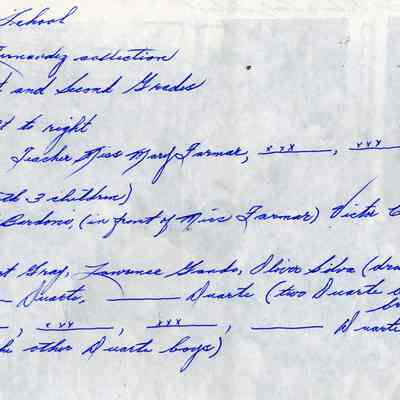 School
Fernandez collection
t and Second Grades
t to right
Teacher Miss Mary Farmar, xxx, xxx
th 3 children)
Berdoni, (in front of Miss Farmar) Victor C
rt Gray, Lawrence Gando, Oliver Silva (dra
Duarte, ____ Duarte (two Duarte
br
, xxx, xxx, ____ Duarte
he other Duarte boys)